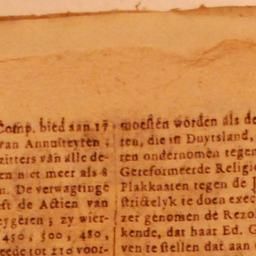 Comp. bied aan 17
van Annuiteyten ;
zitters van alle de-
en niet meer als 8
n. De verwagtinge
eft de Actien van
eygeren ; zy wier-
450, 500, 480,
eede tot 210 voor-
moesten worden als de
ten, die in Duytsland,
ten ondernomen tegen
Gereformeerde Religie
Plakkaaten tegen de J
strickelyk te doen exec
zer genomen de Rezol
kende, dat haar Ed. G
ven te stellen dat aan